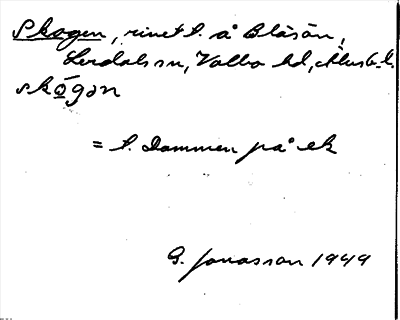 Skogen, rivet t. å Blåsön,
Lerdals sn, Valbo hd, Älvsb. l.
skógən
= t. Dammen på ek
G. Jonasson 1949